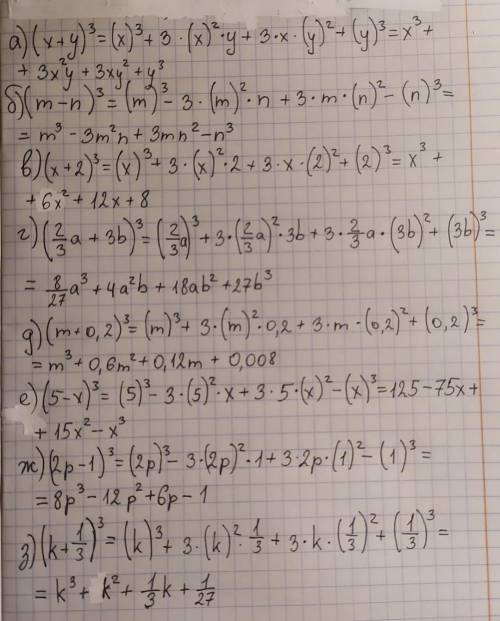 а) (x+y)³ = (x)³ + 3·(x)²·y + 3·x·(y)² + (y)³ = x³ +
+ 3x²y + 3xy² + y³
б) (m-n)³ = (m)³ - 3·(m)²·n + 3·m·(n)² - (n)³ =
= m³ - 3m²n + 3mn² - n³
в) (x+2)³ = (x)³ + 3·(x)²·2 + 3·x·(2)² + (2)³ = x³ +
+ 6x² + 12x + 8
г) (2/3 a + 3b)³ = (2/3 a)³ + 3·(2/3 a)²·3b + 3·2/3 a·(3b)² + (3b)³ =
= 8/27 a³ + 4a²b + 18ab² + 27b³
д) (m+0,2)³ = (m)³ + 3·(m)²·0,2 + 3·m·(0,2)² + (0,2)³ =
= m³ + 0,6m² + 0,12m + 0,008
е) (5-x)³ = (5)³ - 3·(5)²·x + 3·5·(x)² - (x)³ = 125 - 75x +
+ 15x² - x³
ж) (2p-1)³ = (2p)³ - 3·(2p)²·1 + 3·2p·(1)² - (1)³ =
= 8p³ - 12p² + 6p - 1
з) (k + 1/3)³ = (k)³ + 3·(k)²·1/3 + 3·k·(1/3)² + (1/3)³ =
= k³ + k² + 1/3 k + 1/27